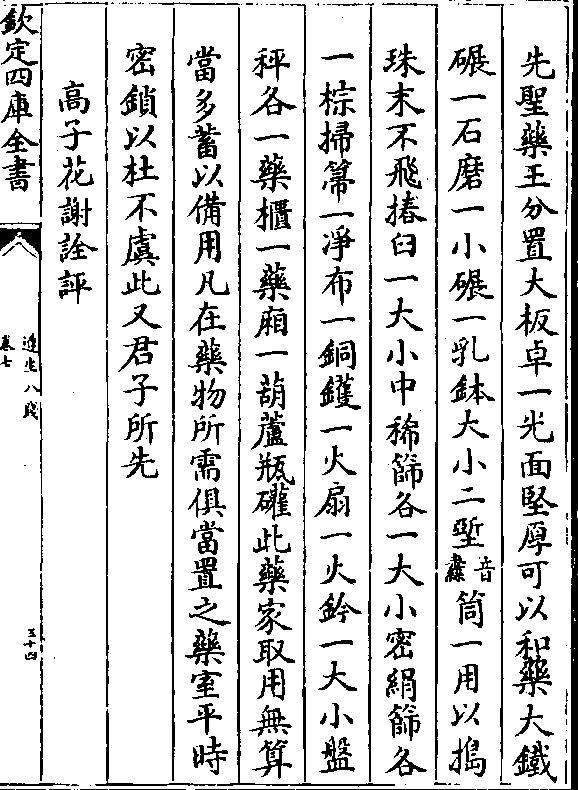 先聖藥王分置大板卓一光面堅厚可以和藥大鐵
碾一石磨一小碾一乳鉢大小二䃺音蘼筒一用以搗
珠末不飛摏臼一大小中稀篩各一大小密絹篩各
一棕掃箒一淨布一銅鑊一火扇一火鈐一大小盤
秤各一藥櫃一藥廂一葫蘆瓶礶此藥家取用無算
當多蓄以備用凡在藥物所需俱當置之藥室平時
密鎖以杜不虞此又君子所先
高子花謝詮評
欽定四庫全書
遵生八牋
卷七
三十四